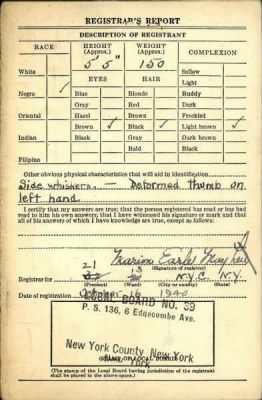 REGISTRAR'S REPORT
DESCRIPTION OF REGISTRANT
RACE HEIGHT (Approx.) WEIGHT (Approx.) COMPLEXION
5' 5" 150
White Sallow
EYES HAIR Light
Negro ✓ Blue Blonde Ruddy
Gray Red Dark
Oriental Hazel Brown Freckled
Brown ✓ Black ✓ Light brown ✓
Indian Black Gray Dark brown
Bald Black
Filipino
Other obvious physical characteristics that will aid in identification
Side whiskers. — Deformed thumb on
left hand
I certify that my answers are true; that the person registered has read or has had
read to him his own answers; that I have witnessed his signature or mark and that
all of his answers of which I have knowledge are true, except as follows:
Earle
(Signature of registrar)
21 13
Registrar for N.Y.C. N.Y.
(Precinct) (Ward) (City or county) (State)
Date of registration October 16 1940
LOCAL BOARD NO. 59
P. S. 136, 6 Edgecombe Ave.
New York County, New York
New York
(The stamp of the Local Board having jurisdiction of the registrant
shall be placed in the above space.)